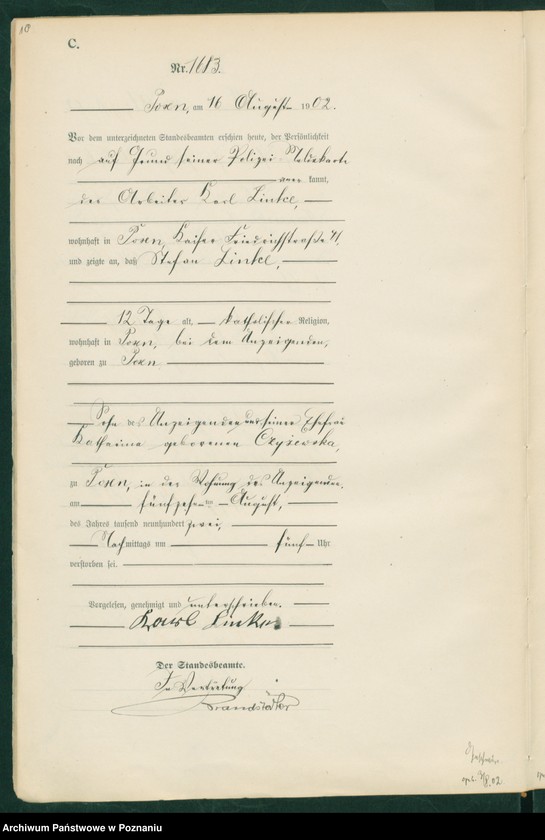 10
C.
Nr. 1613.
Posen, am 16 August 1902.
Vor dem unterzeichneten Standesbeamten erschien heute, der Persönlichkeit
nach auf Grund seiner Polizei Meldekarte
anerkannt,
der Arbeiter Karl Linke,
wohnhaft in Posen, Kaiser Friedrichstraße 41,
und zeigte an, daß Stefan Linke,
12 Tage alt, katholischer Religion,
wohnhaft in Posen, bei dem Anzeigenden,
geboren zu Posen
Sohn des Anzeigenden und seiner Ehefrau
Katharina geborenen Czyżewska,
zu Posen, in der Wohnung des Anzeigenden,
am fünfzehnten August,
des Jahres tausend neunhundert zwei,
Nachmittags um fünf Uhr
verstorben sei.
Vorgelesen, genehmigt und unterschrieben.
Karl Linke
Der Standesbeamte.
In Vertretung
Brandstädter
Archiwum Państwowe w Poznaniu